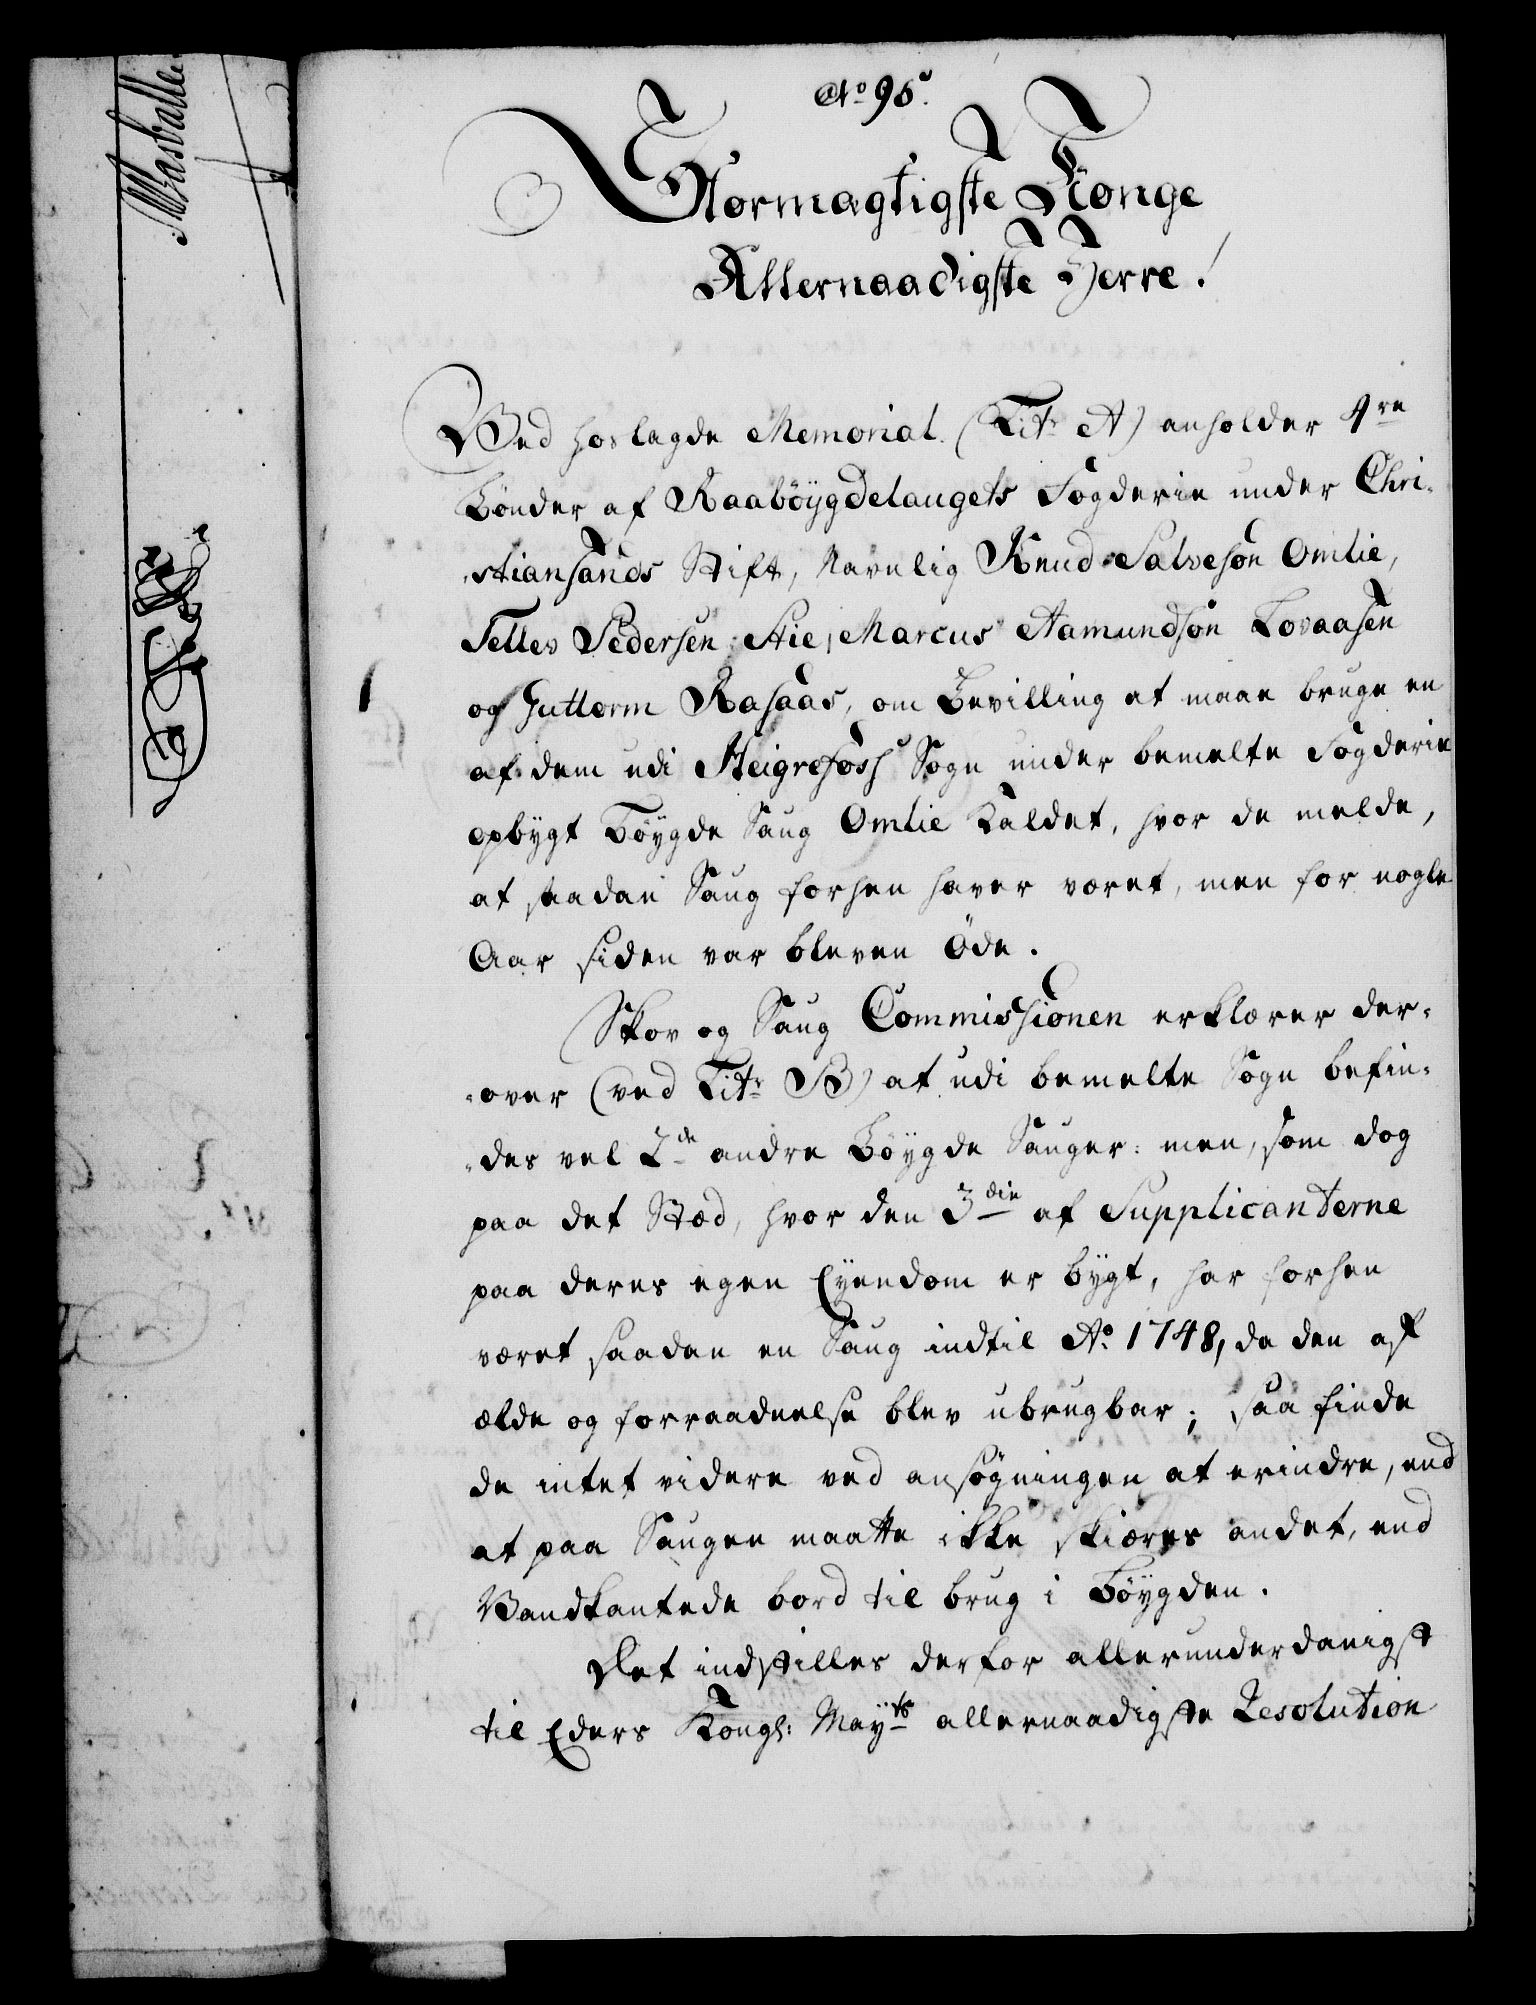 No 95.
Stormægtigste Konge
Allernaadigste Herre!
Ved hoslagde Memorial (Litr A) anholder 4re
Bönder af Raaböÿgdelaugets Fogderie under Chri-
-stiansands Stift, Navnlig Knud Salvesön Omlie,
Tellev Pedersen Stie, Marcus Aamundsön Lovaasen
og Guttorm Rasaas, om Bevilling at maae bruge en
af dem udi Heigrefoss Sogn under bemelte Fogderie
opbÿgt Böÿgde Saug Omlie kaldet, hvor de melde,
at saadan Saug forhen haver været, men for nogle
Aar siden var bleven Öde.
Skov og Saug Commissionen erklærer der-
-over (ved Litr B) at udi bemelte Sogn befin-
-des vel 2de andre Böÿgde Sauger: men, som dog
paa det Stæd, hvor den 3die af Supplicanterne
paa deres egen Eÿendom er bÿgt, har forhen
været saadan en Saug indtil Ao 1748, da den af
ælde og forraadnelse blev ubrugbar; saa finde
de intet videre ved ansögningen at erindre, end
at paa Saugen maatte ikke skiæres andet, end
Vandkantede bord til brug i Böÿgden.
Det indstilles derfor allerunderdanigst
til Eders Kongl: Maÿts allernaadigste Resolution